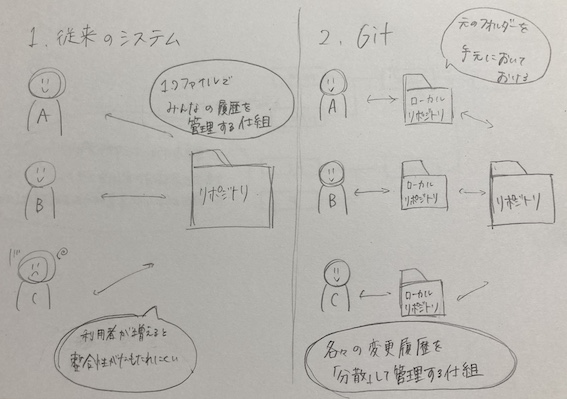 1. 従来のシステム
1つファイルで
みんなの履歴を
管理する仕組
A
B
リポジトリ
C
利用者が増えると
整合性がたもたれにくい
2. Git
元のフォルダーを
手元において
おける
A
ローカル
リポジトリ
B
ローカル
リポジトリ
リポジトリ
C
ローカル
リポジトリ
各々の変更履歴を
「分散」して管理する仕組